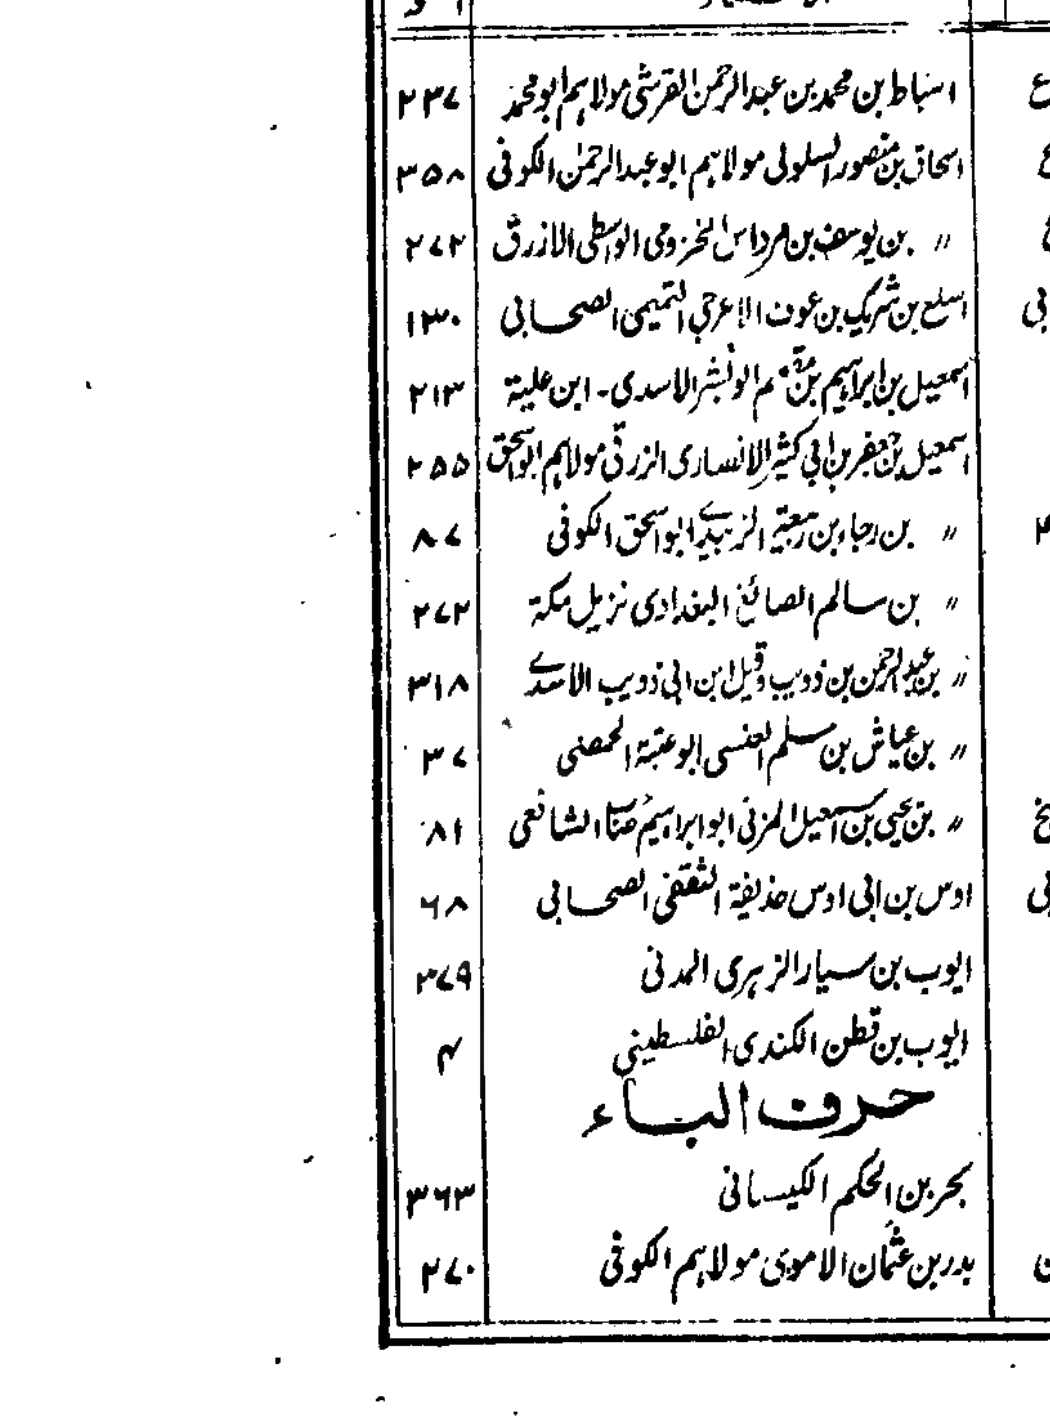 اسباط بن محمد بن عبدالرحمن القرشی مولاہم ابو محمد ۲۳۷
اسحاق بن منصور السلولی مولاہم ابو عبدالرحمن الکوفی ۳۵۸
〃 بن یوسف بن مرداس المخزومی الواسطی الازرق ۲۷۲
اسلع بن شریک بن عوف الاعرجی التمیمی الصحابی ۱۳۰
اسمعیل بن ابراہیم بن مقسم ابو بشر الاسدی۔ ابن علیۃ ۲۱۳
اسمعیل بن جعفر بن ابی کثیر الانصاری الزرقی مولاہم ابو اسحق ۲۵۵
〃 بن رجاء بن ربیعۃ الزبیدی ابو اسحق الکوفی ۸۷
〃 بن سالم الصائغ البغدادی نزیل مکۃ ۲۷۲
〃 بن عبدالرحمن بن ذویب وقیل ابن ابی ذویب الاسدی ۳۱۸
〃 بن عیاش بن سلم العنسی ابو عتبۃ الحمصی ۳۷
〃 بن یحیی بن اسمعیل المزنی ابو ابراہیم صاحب الشافعی ۸۱
اوس بن ابی اوس حذیفۃ الثقفی الصحابی ۶۸
ایوب بن سیار الزہری المدنی ۳۷۹
ایوب بن قطن الکندی الفلسطینی ۴
حرف الباء
بحر بن الحکم الکیسانی ۳۶۳
بدر بن عثمان الاموی مولاہم الکوفی ۲۷۰